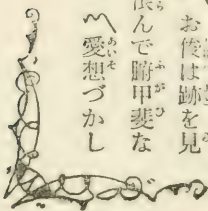 お伝は跡を見
恨んで腑甲斐な
〳〵愛想づかし